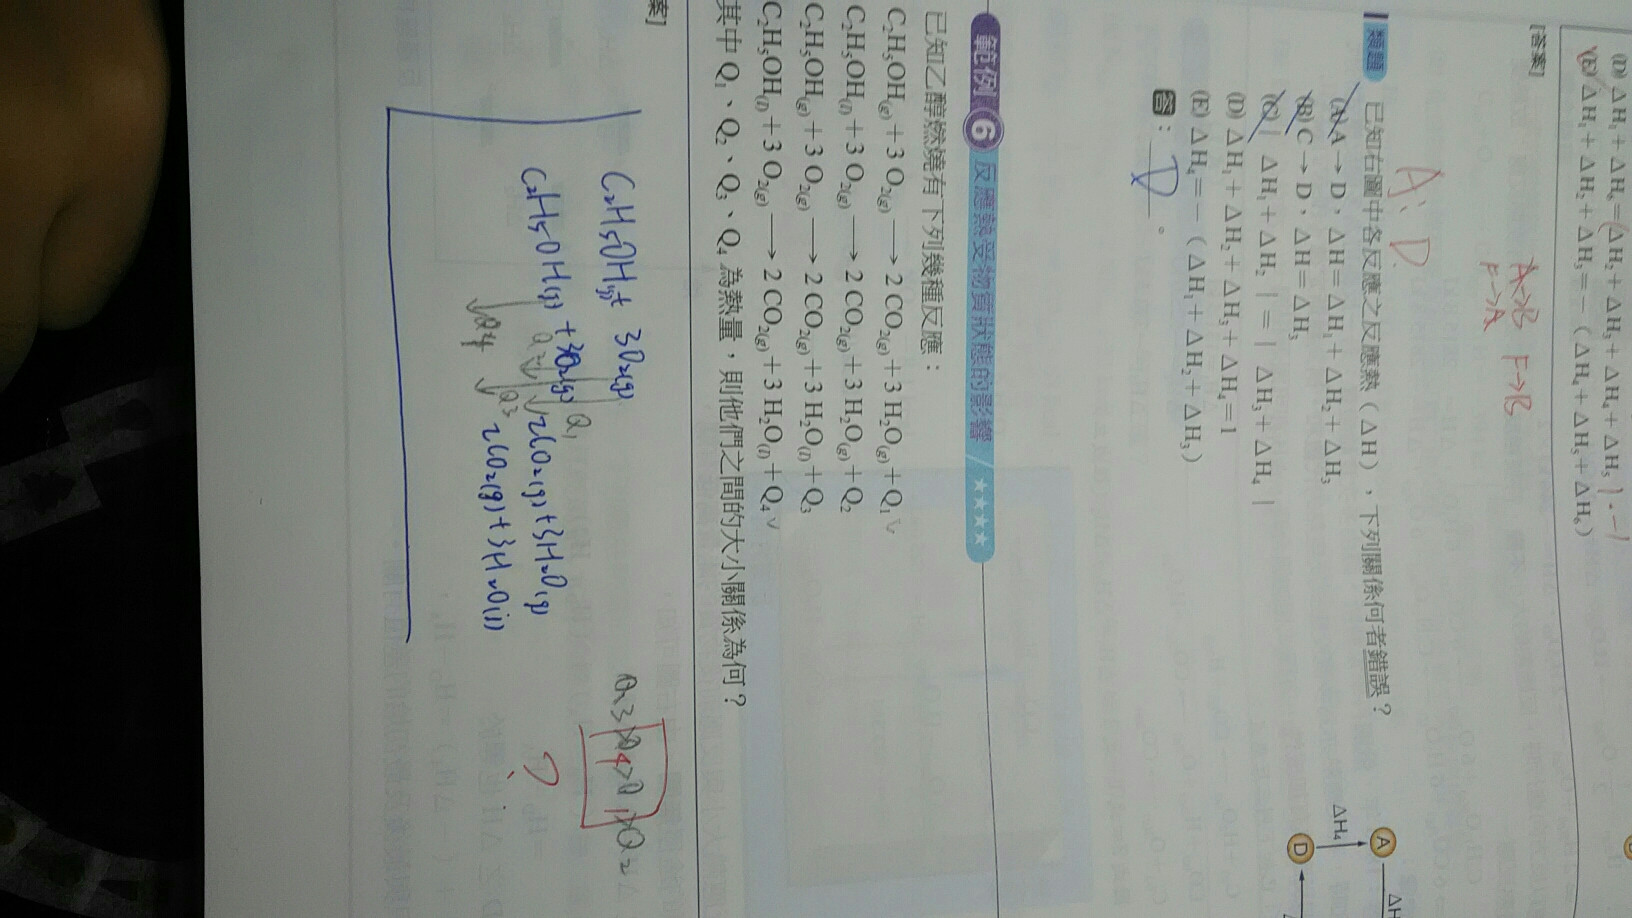 (D) ΔH₁+ΔH₆=(ΔH₂+ΔH₃+ΔH₄+ΔH₅).-1
(E) ΔH₁+ΔH₂+ΔH₃=-(ΔH₄+ΔH₅+ΔH₆)
[答案]
A→B F→B
F→A
A:D
類題 已知右圖中各反應之反應熱(ΔH),下列關係何者錯誤?
(A) A→D,ΔH=ΔH₁+ΔH₂+ΔH₃
(B) C→D,ΔH=ΔH₃
(C)|ΔH₁+ΔH₂|=|ΔH₃+ΔH₄|
(D) ΔH₁+ΔH₂+ΔH₃+ΔH₄=1
(E) ΔH₄=-(ΔH₁+ΔH₂+ΔH₃)
答:D。
A
ΔH₄
D
ΔH
範例 6 反應熱受物質狀態的影響/★★★★
已知乙醇燃燒有下列幾種反應:
C₂H₅OH(g)+3 O₂(g)→2 CO₂(g)+3 H₂O(g)+Q₁
C₂H₅OH(l)+3 O₂(g)→2 CO₂(g)+3 H₂O(g)+Q₂
C₂H₅OH(g)+3 O₂(g)→2 CO₂(g)+3 H₂O(l)+Q₃
C₂H₅OH(l)+3 O₂(g)→2 CO₂(g)+3 H₂O(l)+Q₄
其中Q₁、Q₂、Q₃、Q₄為熱量,則他們之間的大小關係為何?
案]
C₂H₅OH(g)+ 3O₂(g)
Q₁
C₂H₅OH(l)+3O₂(g)
Q₂
2CO₂(g)+3H₂O(g)
Q₃
Q4
2CO₂(g)+3H₂O(l)
Q3>Q4>Q1>Q2
?